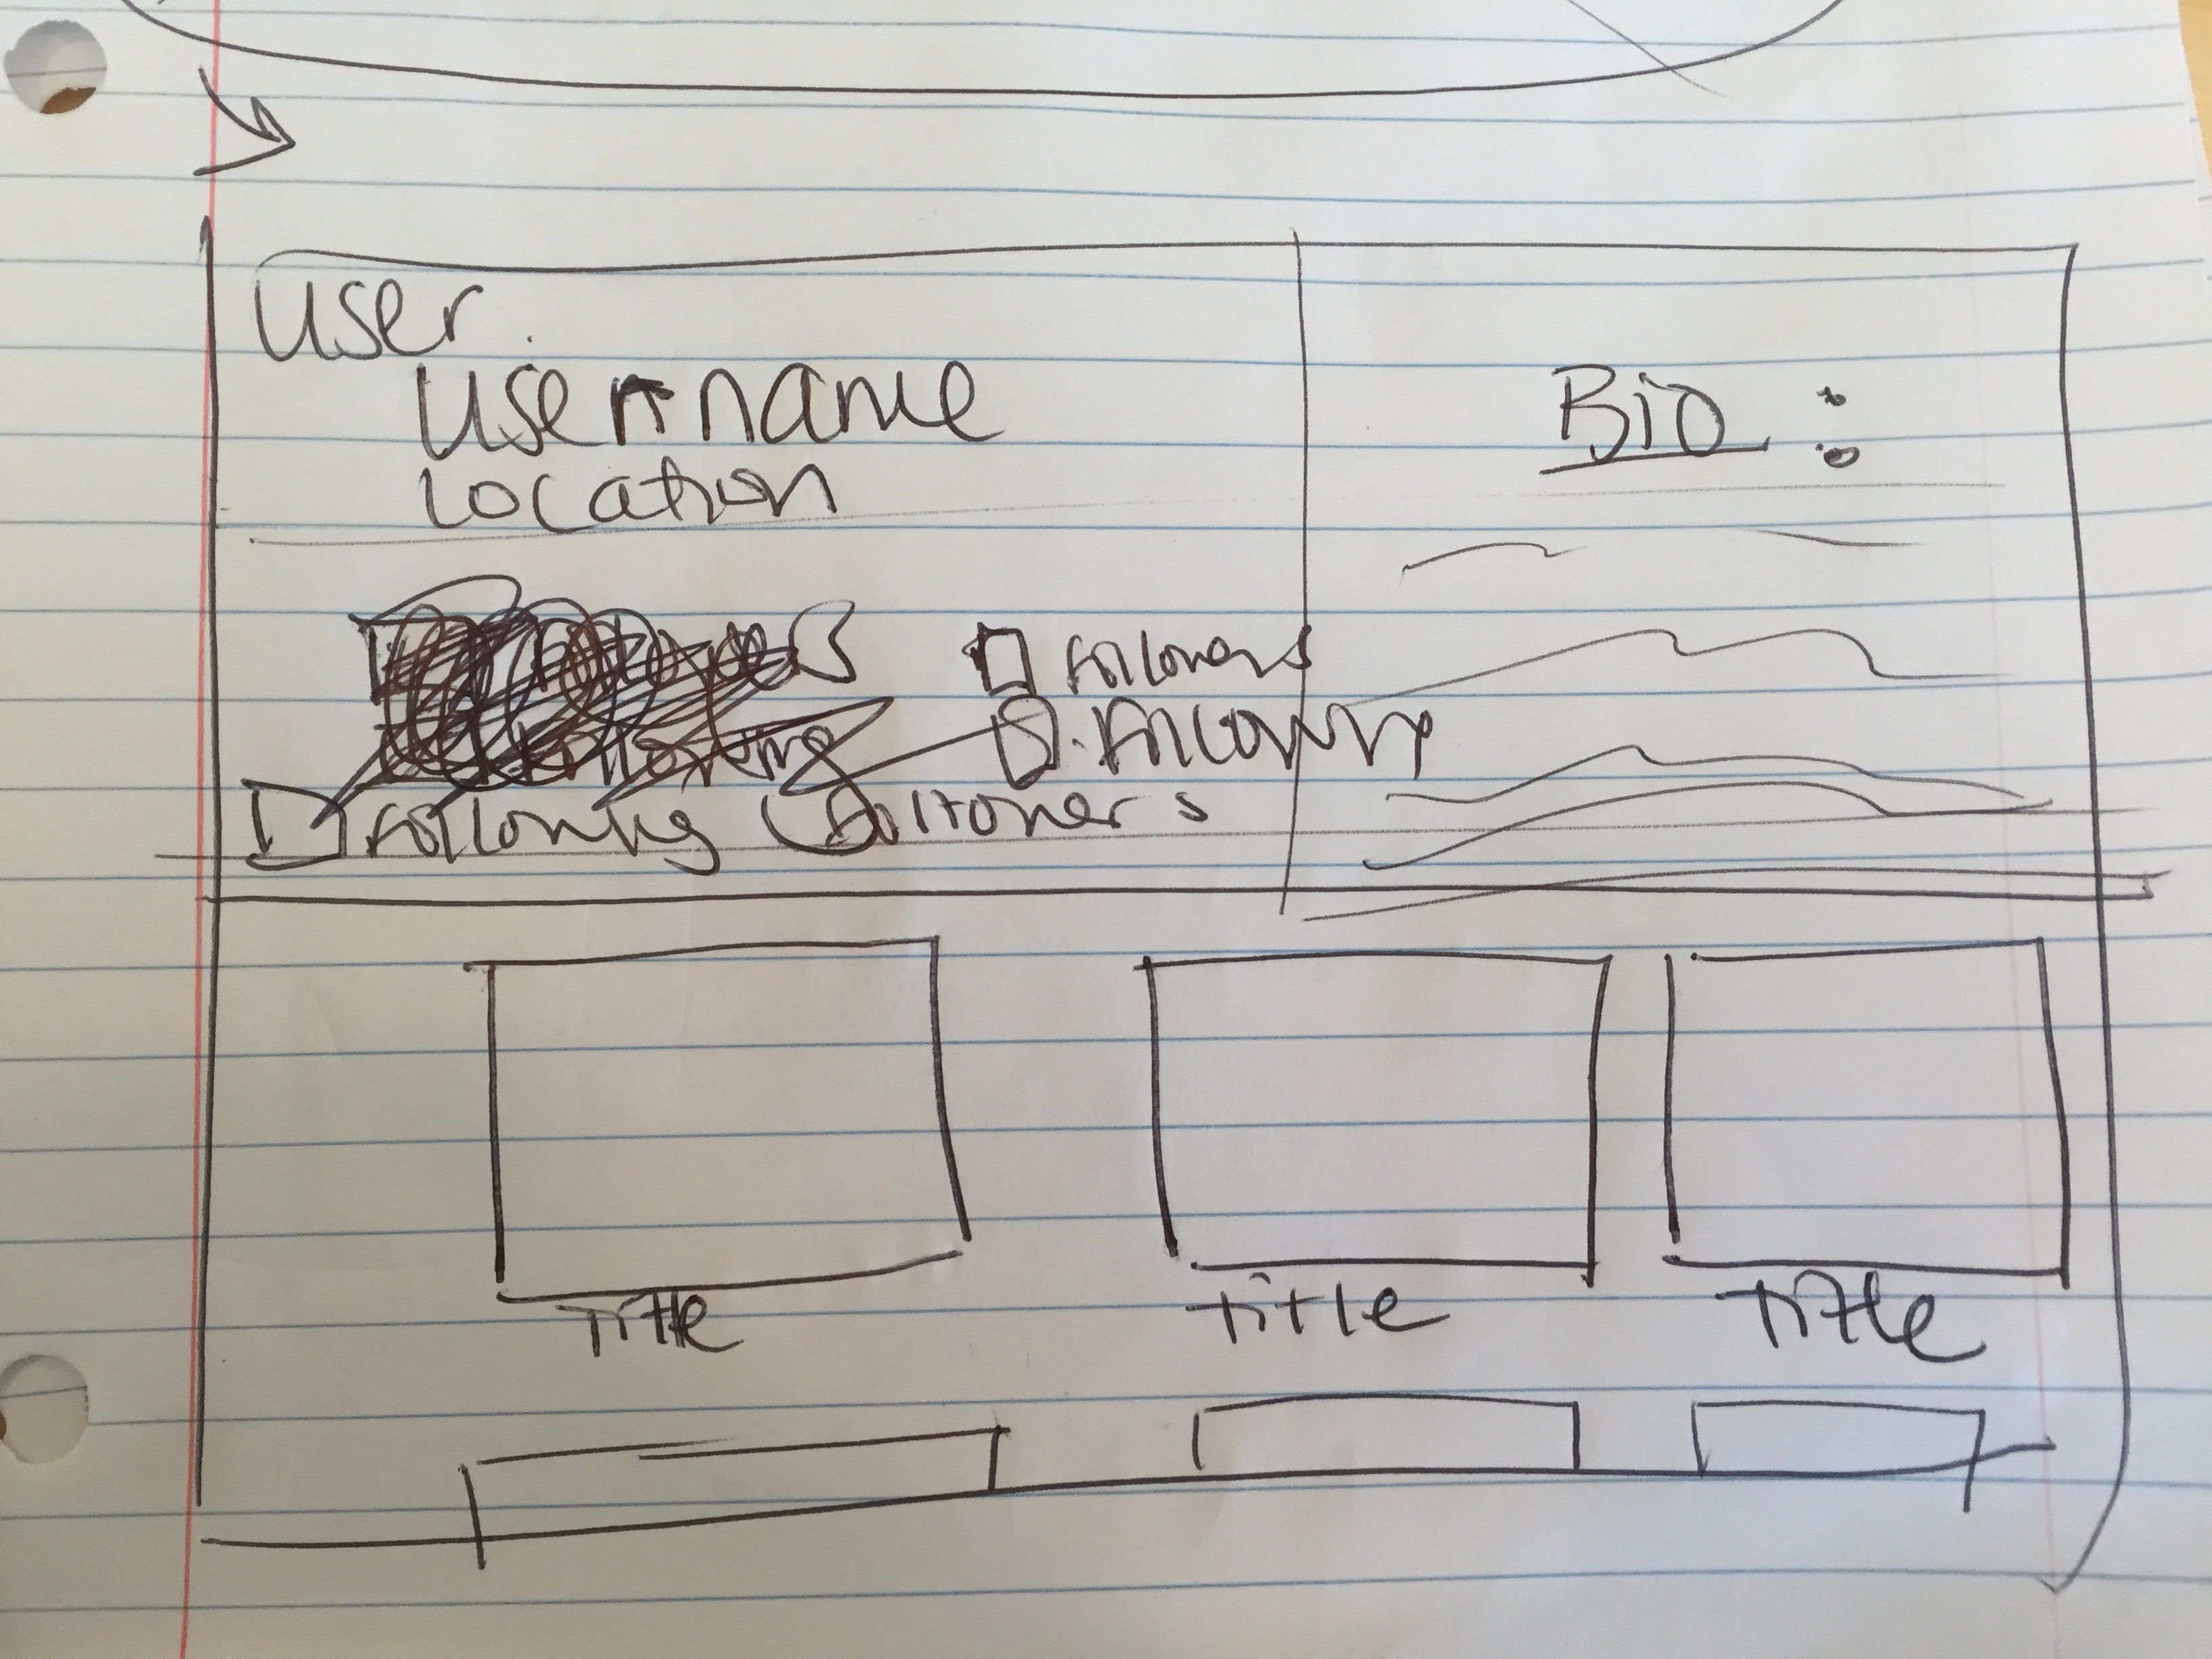 User
Username
Location
Bio :
Followers
Following
Following Followers
Title Title Title